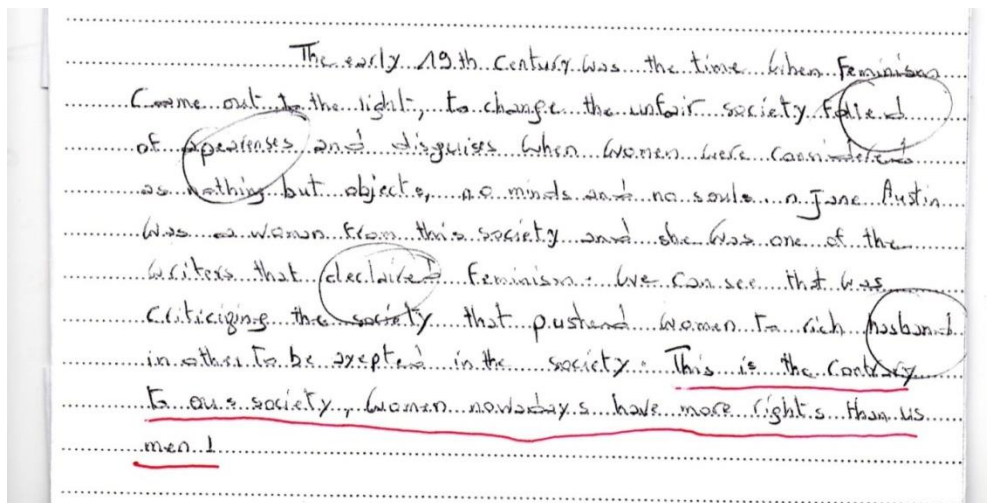 The early 19th Century was the time when Feminism
Come out to the light, to change the unfair society folled
of apearenses and disguises when women were considered
as nothing but objects, no minds and no souls. Jane Austin
was a woman from this society and she was one of the
writers that declaired Feminism. We can see that was
Criticizing the society that pushend women to rich hasband
in other to be axepted in the society. This is the Contrary
to our society, women nowadays have more rights than us
men !